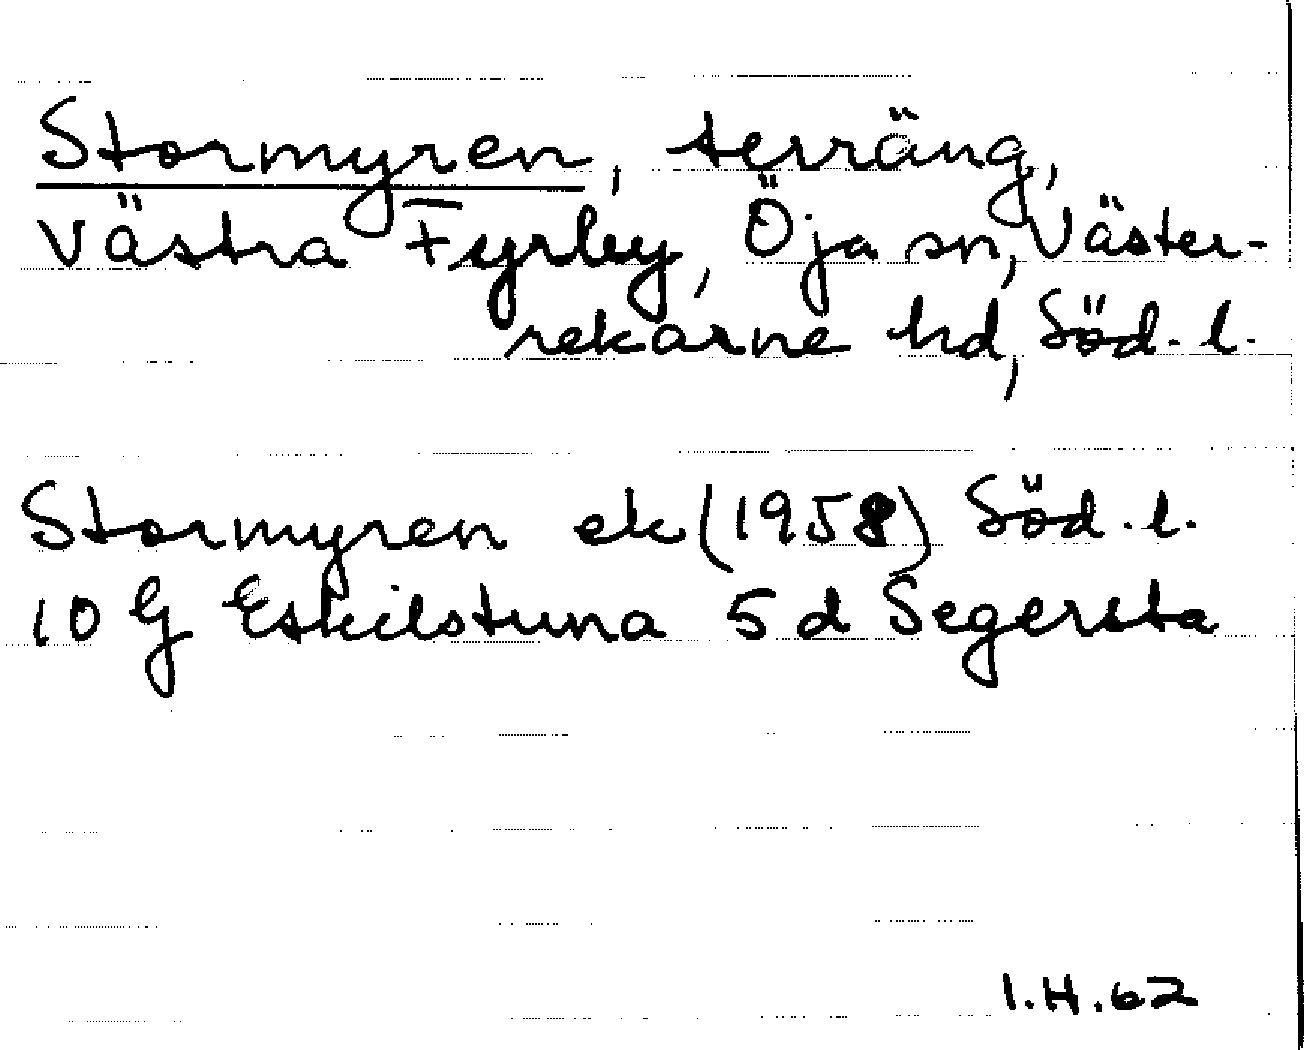 Stormyren, terräng,
Västra Fyrby, Öja sn, Väster-
rekarne hd, Söd. l.
Stormyren ek (1958) Söd. l.
10 G Eskilstuna 5 d Segersta
I.H.62